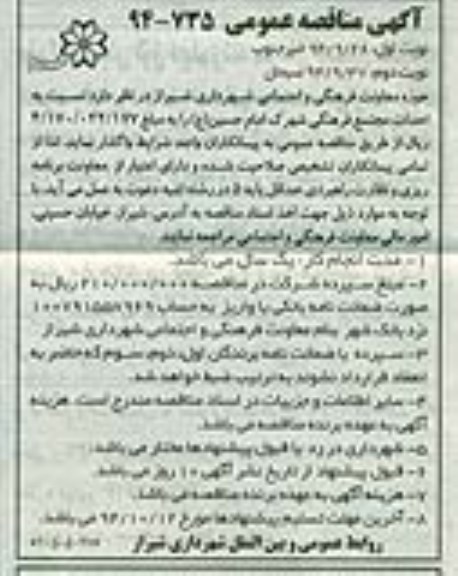 آگهی مناقصه عمومی ۷۳۵-۹۴
نوبت اول:
نوبت دوم:
حوزه معاونت فرهنگی و اجتماعی شهرداری شیراز در نظر دارد نسبت به
احداث مجتمع فرهنگی شهرک امام حسین(ع) را به مبلغ
ریال از طریق مناقصه عمومی به پیمانکاران واجد شرایط واگذار نماید. لذا از
تمامی پیمانکاران تشخیص صلاحیت شده و دارای اعتبار از معاونت برنامه
ریزی و نظارت راهبردی حداقل پایه ۵ در رشته ابنیه دعوت به عمل می آید، با
توجه به موارد ذیل جهت اخذ اسناد مناقصه به آدرس: شیراز، خیابان حسینی،
امور مالی معاونت فرهنگی و اجتماعی مراجعه نمایند.
۱- مدت انجام کار: یک سال می باشد.
۲- مبلغ سپرده شرکت در مناقصه ۲۱۰/۰۰۰/۰۰۰ ریال به
صورت ضمانت نامه بانکی یا واریز به حساب
نزد بانک شهر بنام معاونت فرهنگی و اجتماعی شهرداری شیراز
۳- سپرده یا ضمانت نامه برندگان اول، دوم، سوم که حاضر به
انعقاد قرارداد نشوند به ترتیب ضبط خواهد شد.
۴- سایر اطلاعات و جزییات در اسناد مناقصه مندرج است. هزینه
آگهی به عهده برنده مناقصه می باشد.
۵- شهرداری در رد یا قبول پیشنهادها مختار می باشد.
۶- قبول پیشنهاد از تاریخ نشر آگهی ۱۰ روز می باشد.
۷- هزینه آگهی به عهده برنده مناقصه می باشد.
۸- آخرین مهلت تسلیم پیشنهادها مورخ ۹۴/۱۰/۱۲ می باشد.
روابط عمومی و بین الملل شهرداری شیراز